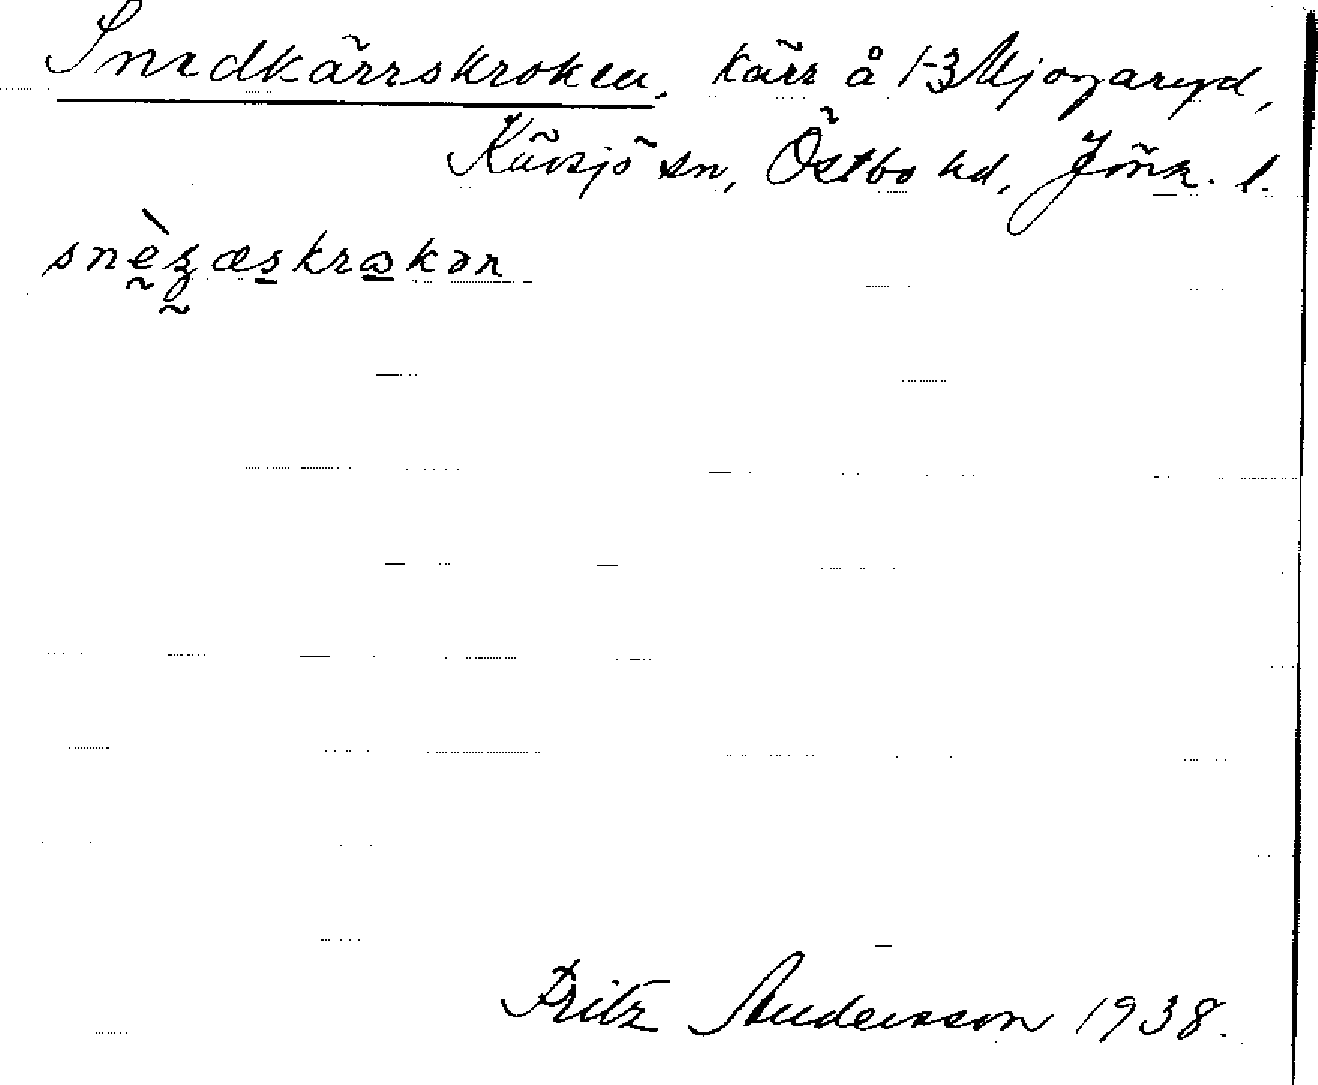 Snedkärrskroken, kärr å 1-3 Mjogaryd,
Kävsjö sn, Östbo hd, Jönk. l.
snèʒæskrɷkən
Fritz Andersson 1938.